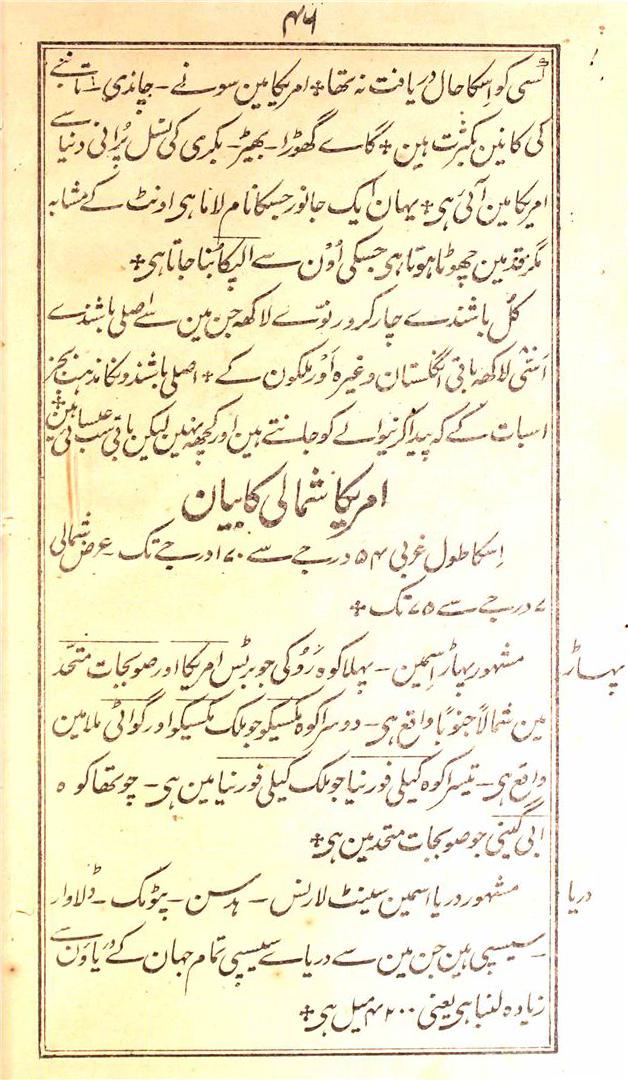 ۴۶
کسی کو اِسکا حال دریافت نہ تھا + امریکا مین سونے - چاندی - تانبے
کی کانین بکثرت ہین + گاے گھوڑا - بھیڑ - بکری کی نسل پُرانی دنیا سے
امریکا مین آئی ہی + یہان ایک جانور جسکا نام لاما ہی اونٹ کے مشابہ
مگر قد مین چھوٹا ہوتا ہی جسکی اُون سے الپکا بُنا جاتا ہی +
کل باشندے چار کرور نوّے لاکھ جن مین سے اصلی باشندے
اسّی لاکھ باقی انگلستان وغیرہ اَور ملکون کے + اصلی باشندونکا مذہب بجز
اسبات کے کہ پیدا کرنیوالے کو جانتے ہین اور کچھ نہین لیکن باقی سب عیسائی ہین +
امریکا شمالی کا بیان
اِسکا طول غربی ۵۴ درجے سے ۱۷۰ درجے تک - عرض شمالی
۷ درجے سے ۷۵ تک +
پہاڑ
مشہور پہاڑ اِسمین - پہلا کوہ رَوکی جو برٹس امریکا اور صوبجات متحدہ
مین شمالاً جنوباً واقع ہی - دوسرا کوہ مکسیکو جو ملک مکسیکو اور گواٹی ملا مین
واقع ہی - تیسرا کوہ کیلی فورنیا جو ملک کیلی فورنیا مین ہی - چوتھا کوہ
ایلی گینی جو صوبجات متحدہ مین ہی +
دریا
مشہور دریا اسمین سینٹ لارنس - ہڈسن - پٹومک - ڈلاوار
- مسیسپی ہین جن مین سے دریاے مسیسپی تمام جہان کے دریاؤن سے
زیادہ لنبا ہی یعنی ۴۲۰۰ میل ہی +